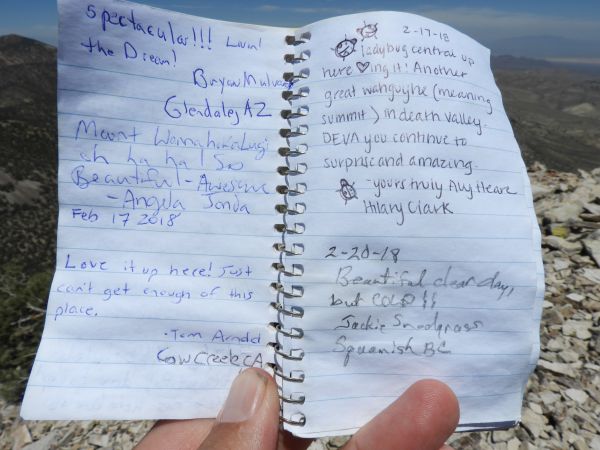 Spectacular!!! Livin'
the Dream!
Bryan
Glendale, AZ
Mount
ah ha ha! So
Beautiful - Awesome
- Angela
Feb 17 2018
Love it up here! Just
can't get enough of this
place.
- Tom Arnold
Cow Creek CA
2-17-18
ladybug central up
here ♡ing it! Another
great wahguyhe (meaning
summit) in death valley.
DEVA you continue to
surprise and amazing.
- yours truly
Hilary Clark
2-20-18
Beautiful clear day,
but COLD!!
Jackie Snodgrass
Squamish BC